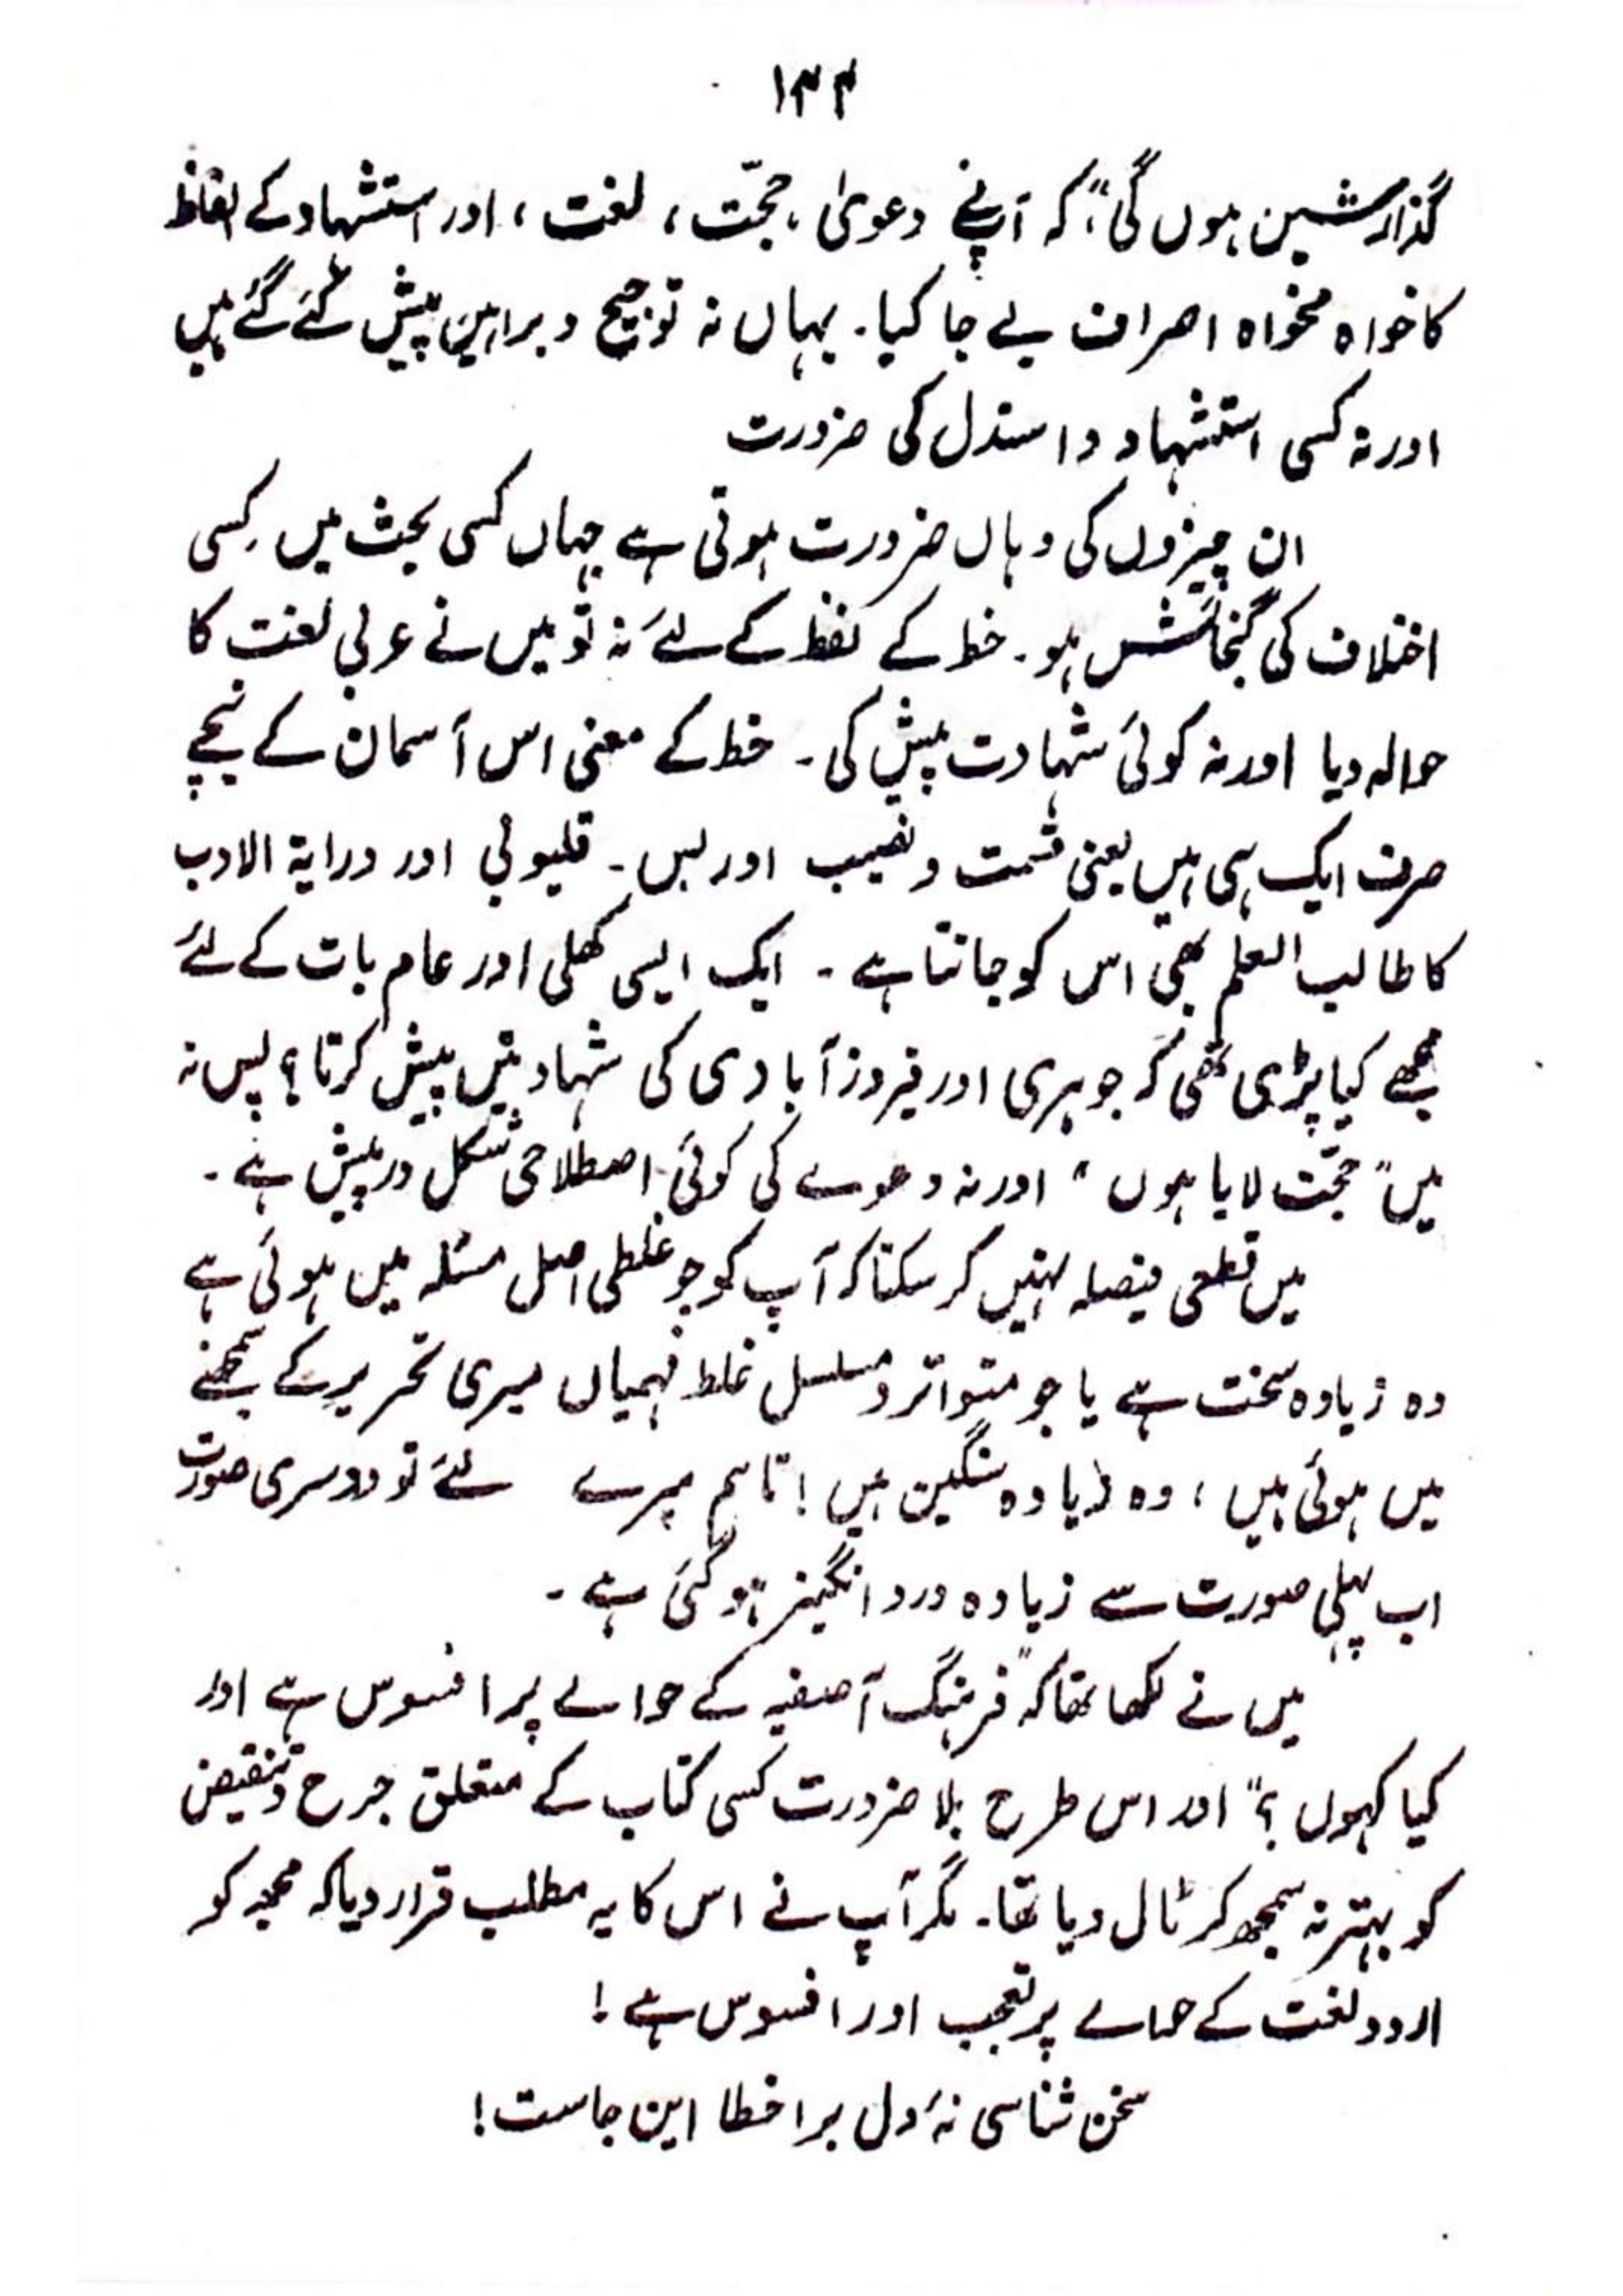 ۱۳۴
گذارشیں ہوں گی"، کہ آپنے دعویٰ، حجّت، لغت، اور استشہاد کے الفاظ
کا خواہ مخواہ اصراف بے جا کیا۔ یہاں نہ توجیح و براہین پیش کئے گئے ہیں
اور نہ کسی استشہاد و استدل کی ضرورت
ان چیزوں کی وہاں ضرورت ہوتی ہے جہاں کسی بحث میں کسی
اختلاف کی گنجائش ہو۔ خط کے لفظ کے لئے نہ تو میں نے عربی لغت کا
حوالہ دیا اور نہ کوئی شہادت پیش کی۔ خط کے معنی اس آسمان کے نیچے
صرف ایک ہی ہیں یعنی قسمت و نصیب اور بس۔ قلیوبی اور درایۃ الادب
کا طالب العلم بھی اس کو جانتا ہے۔ ایک ایسی کھلی اور عام بات کے لئے
مجھے کیا پڑی تھی کہ جوہری اور فیروزآبادی کی شہادتیں پیش کرتا؟ پس نہ
میں "حجّت لایا ہوں" اور نہ دعوے کی کوئی اصطلاحی شکل درپیش ہے۔
میں قطعی فیصلہ نہیں کر سکتا کہ آپ کو جو غلطی اصل مسئلہ میں ہوئی ہے
وہ زیادہ سخت ہے یا جو متواتر و مسلسل غلط فہمیاں میری تحریر کے سمجھنے
میں ہوئی ہیں، وہ زیادہ سنگین ہیں! تاہم میرے لئے تو دوسری صورت
اب پہلی صورت سے زیادہ درد انگیز ہو گئی ہے۔
میں نے لکھا تھا کہ "فرہنگ آصفیہ کے حوالے پر افسوس ہے اور
کیا کہوں؟" اور اس طرح بلا ضرورت کسی کتاب کے متعلق جرح و تنقیص
کو بہتر نہ سمجھ کر ٹال دیا تھا۔ مگر آپ نے اس کا یہ مطلب قرار دیا کہ مجھ کو
اردو لغت کے حوالے پر تعجب اور افسوس ہے!
سخن شناسی نۂ دل برا خطا این جاست!